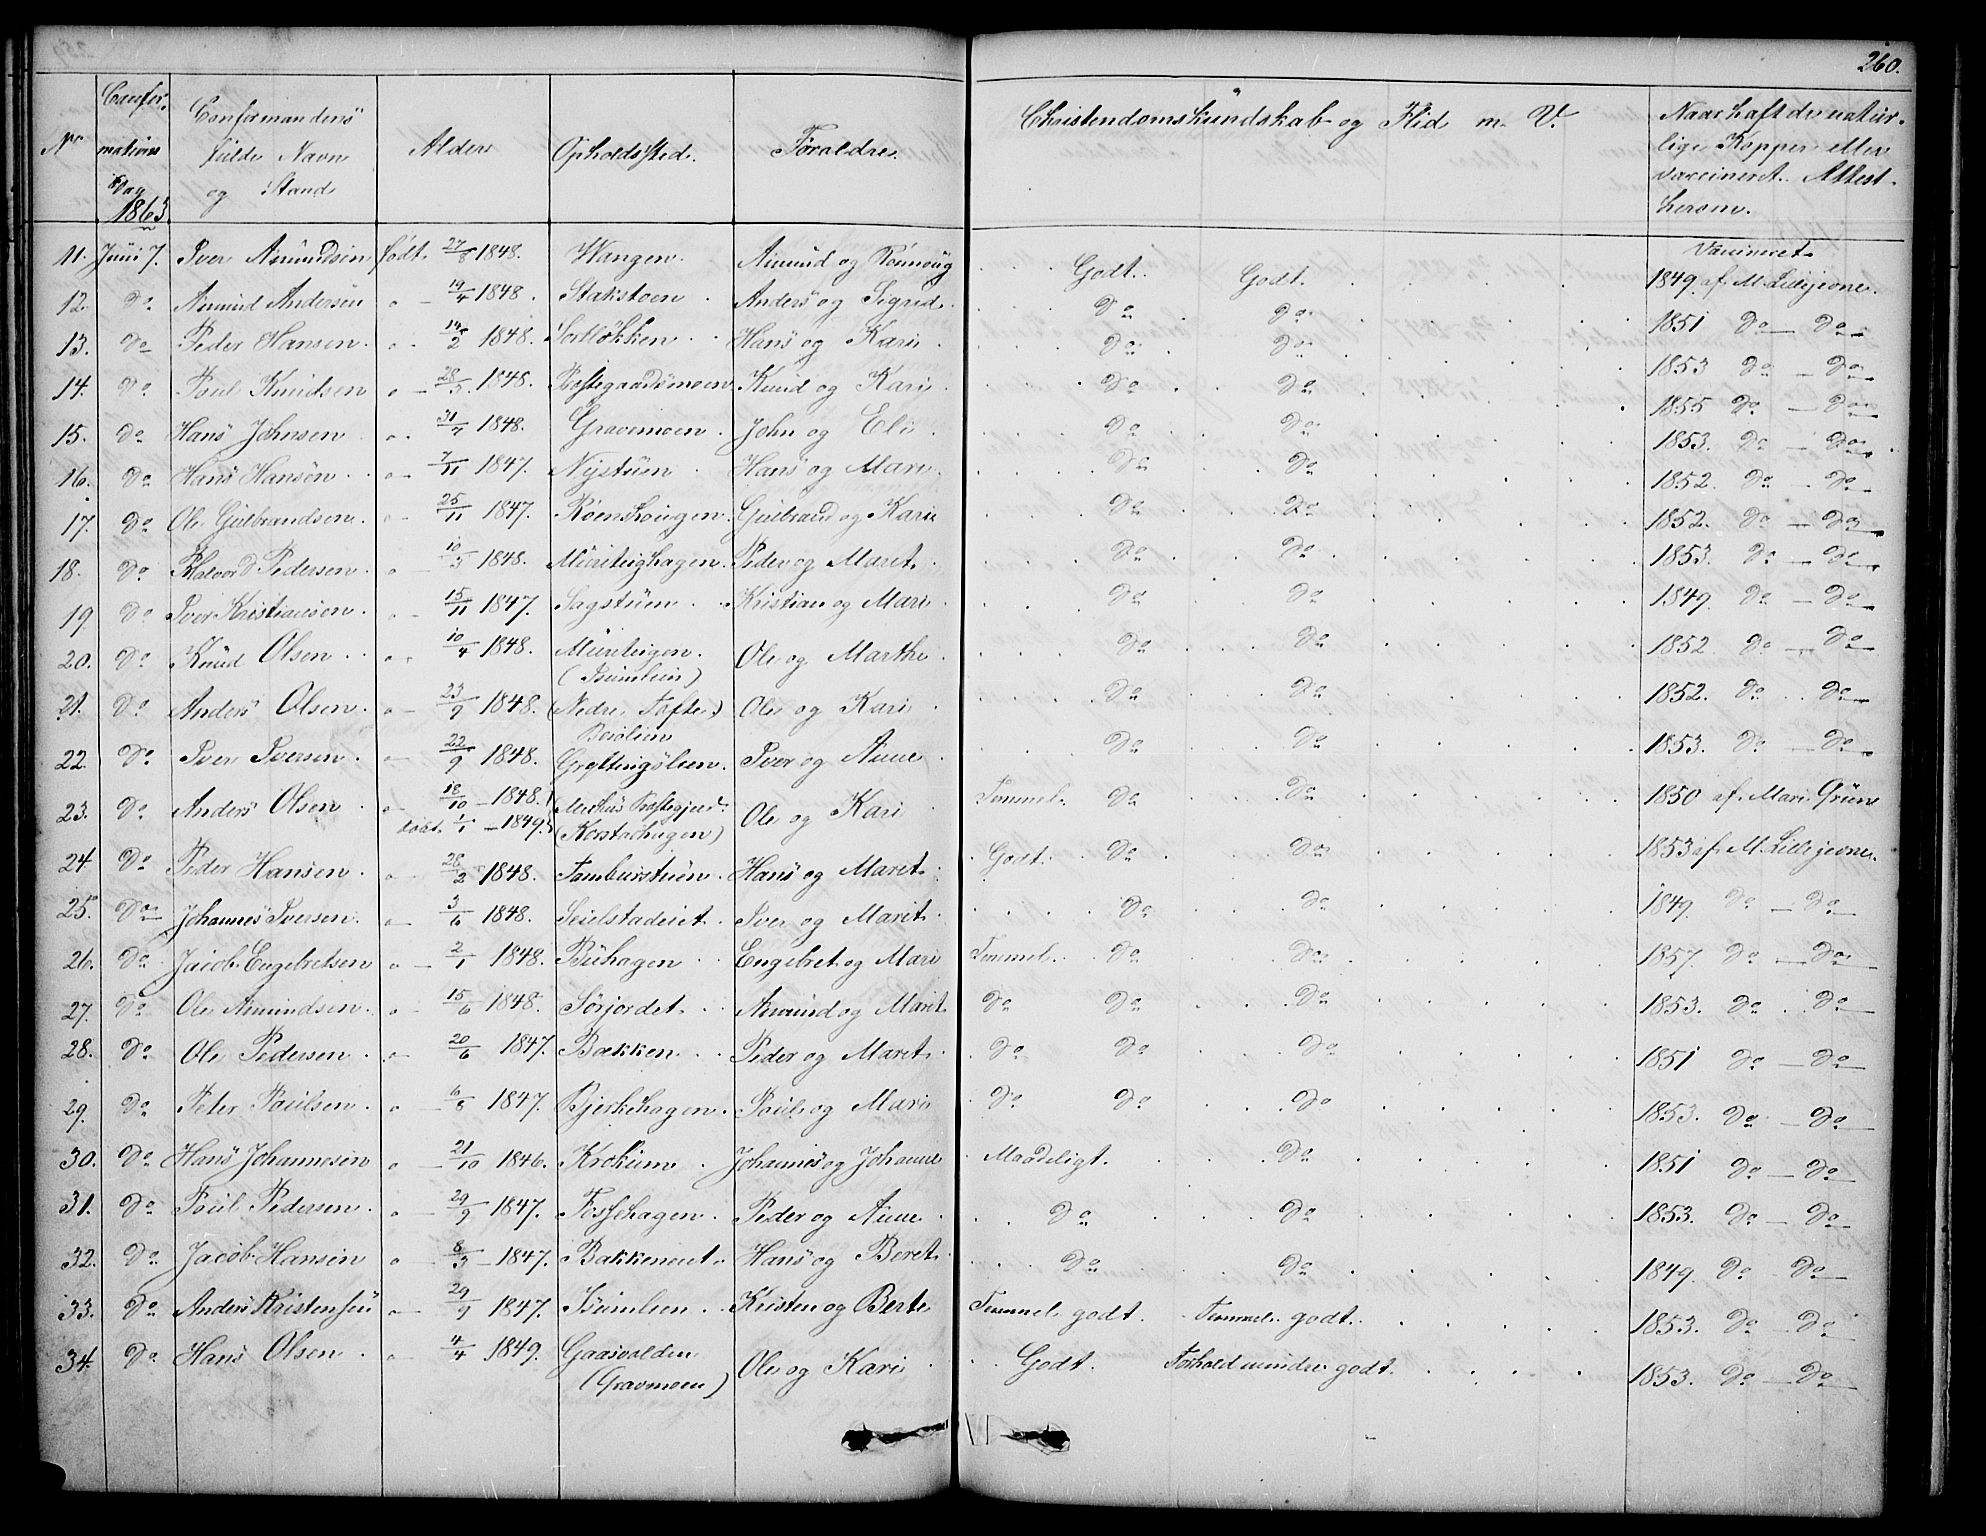 260.
No
Confir-
mations
Dag
1863
Confirmanders
fulde Navn
og Stand
Alder
Opholdssted.
Foraldre.
Christendomskundskab og Flid m. V.
Naar haft de natur-
lige Kopper eller
vaccineret. Attest
herom.
11. Juni 7. Iver Amundsen født 27/8 1848. Wangen. Amund og Rønnoug Godt. Godt. Vaccineret 1849 af M. Lillejevne.
12. Do Amund Andersen " 19/4 1848. Stakstoen Anders og Sigrid Do Do 1851 Do Do
13. Do Peder Hansen " 14/2 1848. Sorlløkken Hans og Kari Do Do 1853 Do Do
14. Do Poul Knudsen " 28/3 1848. Præstegaardsmoen Knud og Kari Do Do 1855 Do Do
15. Do Hans Johnsen " 31/7 1848. Gravemoen John og Eli Do Do 1853. Do Do
16. Do Hans Hansen " 7/11 1847. Nystuen Hans og Mari Do Do 1852. Do Do
17. Do Ole Gulbrandsen " 25/11 1847. Røenshougen Gulbrand og Kari Do Do 1852. Do Do
18. Do Halvord Pedersen " 10/3 1848. Peder og Maret Do Do 1853. Do Do
19. Do Iver Kristiansen " 15/11 1847. Sagstuen Kristian og Mari Do Do 1849. Do Do
20. Do Knud Olsen " 10/4 1848. Ole og Marthe Do Do 1852. Do Do
21. Do Anders Olsen " 23/9 1848. (Nedre Tofte) Ole og Kari Do Do 1852. Do Do
22. Do Iver Iversen " 22/9 1848. Iver og Anne Do Do 1853. Do Do
23. Do Anders Olsen " 18/10 1848. døbt 1/1 1849. Ole og Kari Temmel. Do Do 1850 af Mari Grüne
24. Do Peder Hansen " 28/2 1848. Tamburstuen Hans og Maret Godt. Do Do 1853 af M. Lillejevne.
25. Do Johannes Iversen " 3/6 1848. Seielstadeiet Iver og Marit Do Do 1849 Do Do
26. Do Jacob Engebretsen " 2/1 1848. Buhagen Engebret og Mari Temmel. Do Do 1857. Do Do
27. Do Ole Amundsen " 15/6 1848. Sørjordet Amund og Marit Do Do Do 1853. Do Do
28. Do Ole Pedersen " 20/6 1847. Bækken Peder og Maret Do Do Do 1851 Do Do
29. Do Peter Paulsen " 6/8 1847. Bjerkehagen Poul og Mari Do Do Do 1853. Do Do
30. Do Hans Johannesen " 21/10 1846. Krokum Johannes og Johanne Maadeligt. Do 1851 Do Do
31. Do Poul Pedersen " 29/9 1847. Fossehagen Peder og Anne Do Do 1853. Do Do
32. Do Jacob Hansen " 8/3 1847. Bakkemoet Hans og Beret Do Do 1849. Do Do
33. Do Anders Kristensen " 29/9 1847. Kristen og Berte Temmel. godt. Temmel. godt. 1853. Do Do
34. Do Hans Olsen " 4/4 1849. Gaasvolden (Gravmoen) Ole og Kari Godt. Forhold mindre godt. 1853. Do Do